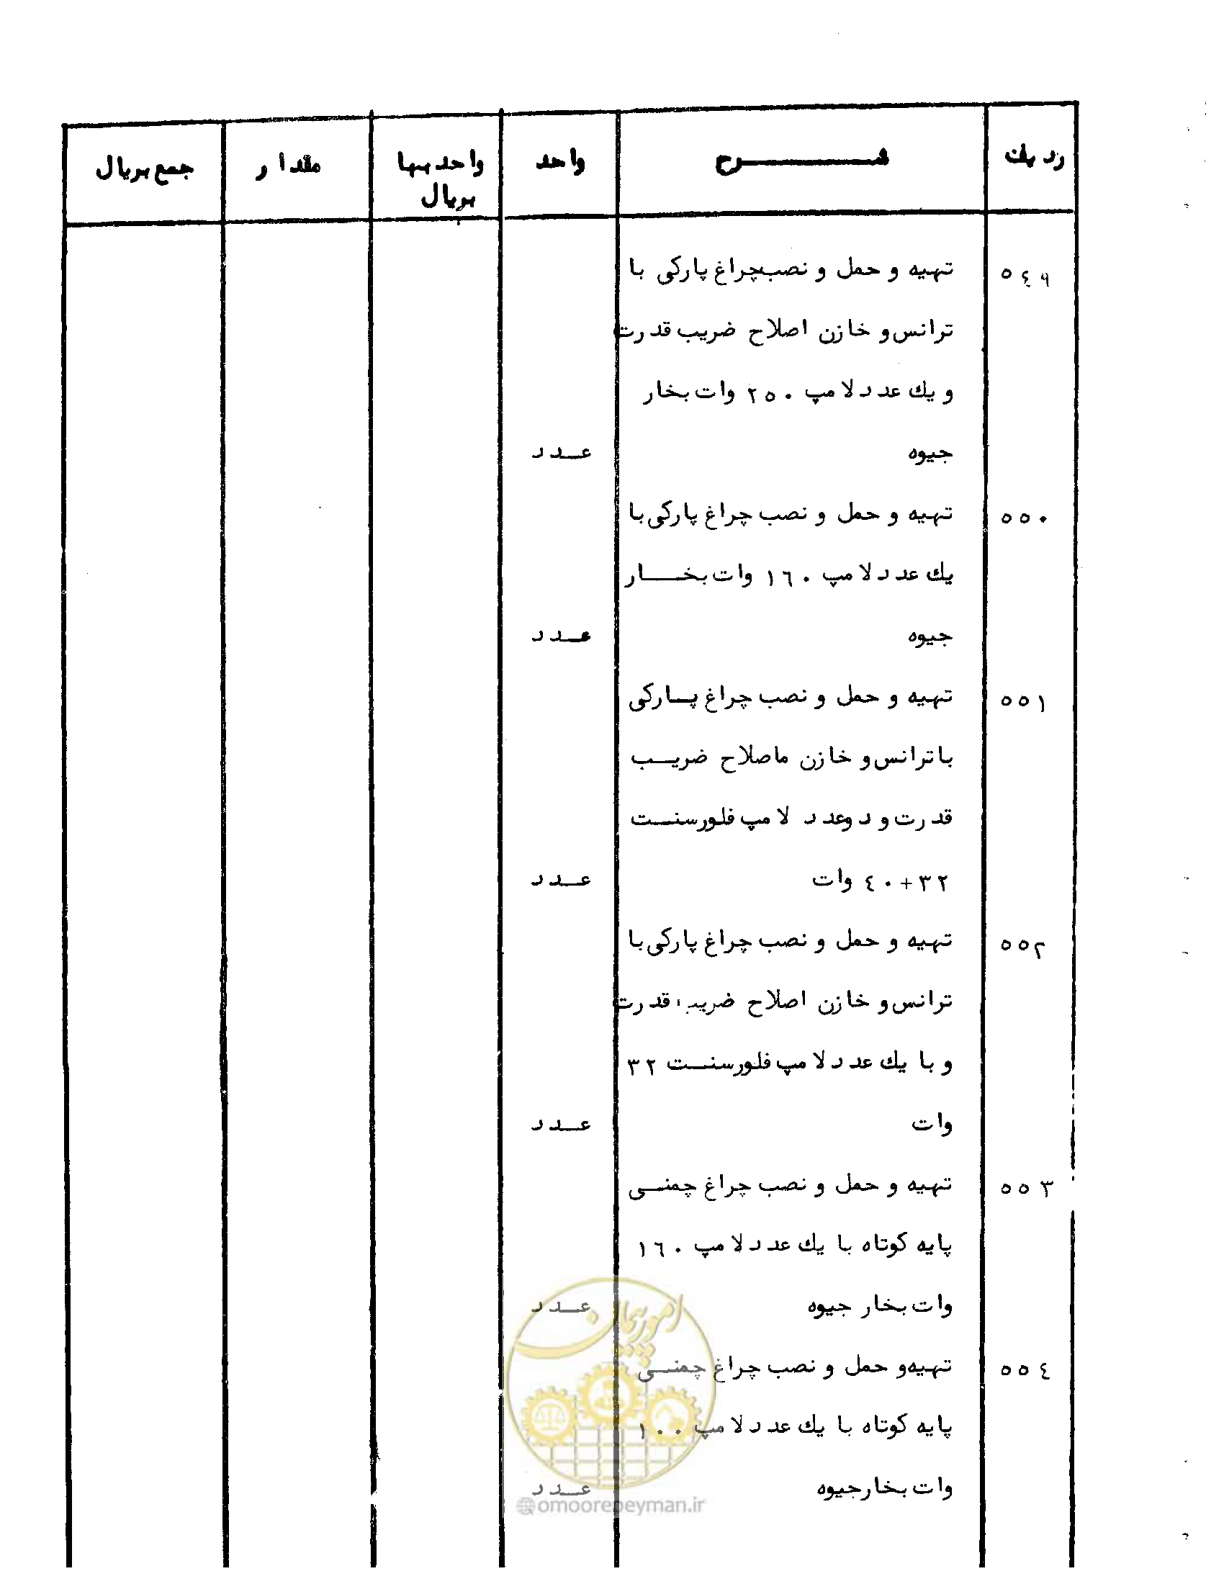 ردیف شـــــرح واحد واحدبها مقدار جمع بریال
بریال
٥٤٩ تهیه و حمل و نصب چراغ پارکی با
ترانس و خازن اصلاح ضریب قدرت
و یك عدد لامپ ٢٥٠ وات بخار
جیوه عــدد
٥٥٠ تهیه و حمل و نصب چراغ پارکی با
یك عدد لامپ ١٦٠ وات بخــــار
جیوه عــدد
٥٥١ تهیه و حمل و نصب چراغ پــارکی
با ترانس و خازن ماصلاح ضریــب
قدرت و دوعدد لامپ فلورسنــت
٣٢+٤٠ وات عــدد
٥٥٢ تهیه و حمل و نصب چراغ پارکی با
ترانس و خازن اصلاح ضریب قدرت
و با یك عدد لامپ فلورسنــت ٣٢
وات عــدد
٥٥٣ تهیه و حمل و نصب چراغ چمنــی
پایه کوتاه با یك عدد لامپ ١٦٠
وات بخار جیوه عــدد
٥٥٤ تهیه و حمل و نصب چراغ چمنــی
پایه کوتاه با یك عدد لامپ ١٠٠
وات بخار جیوه عــدد
امور پیمان
@omoorepeyman.ir